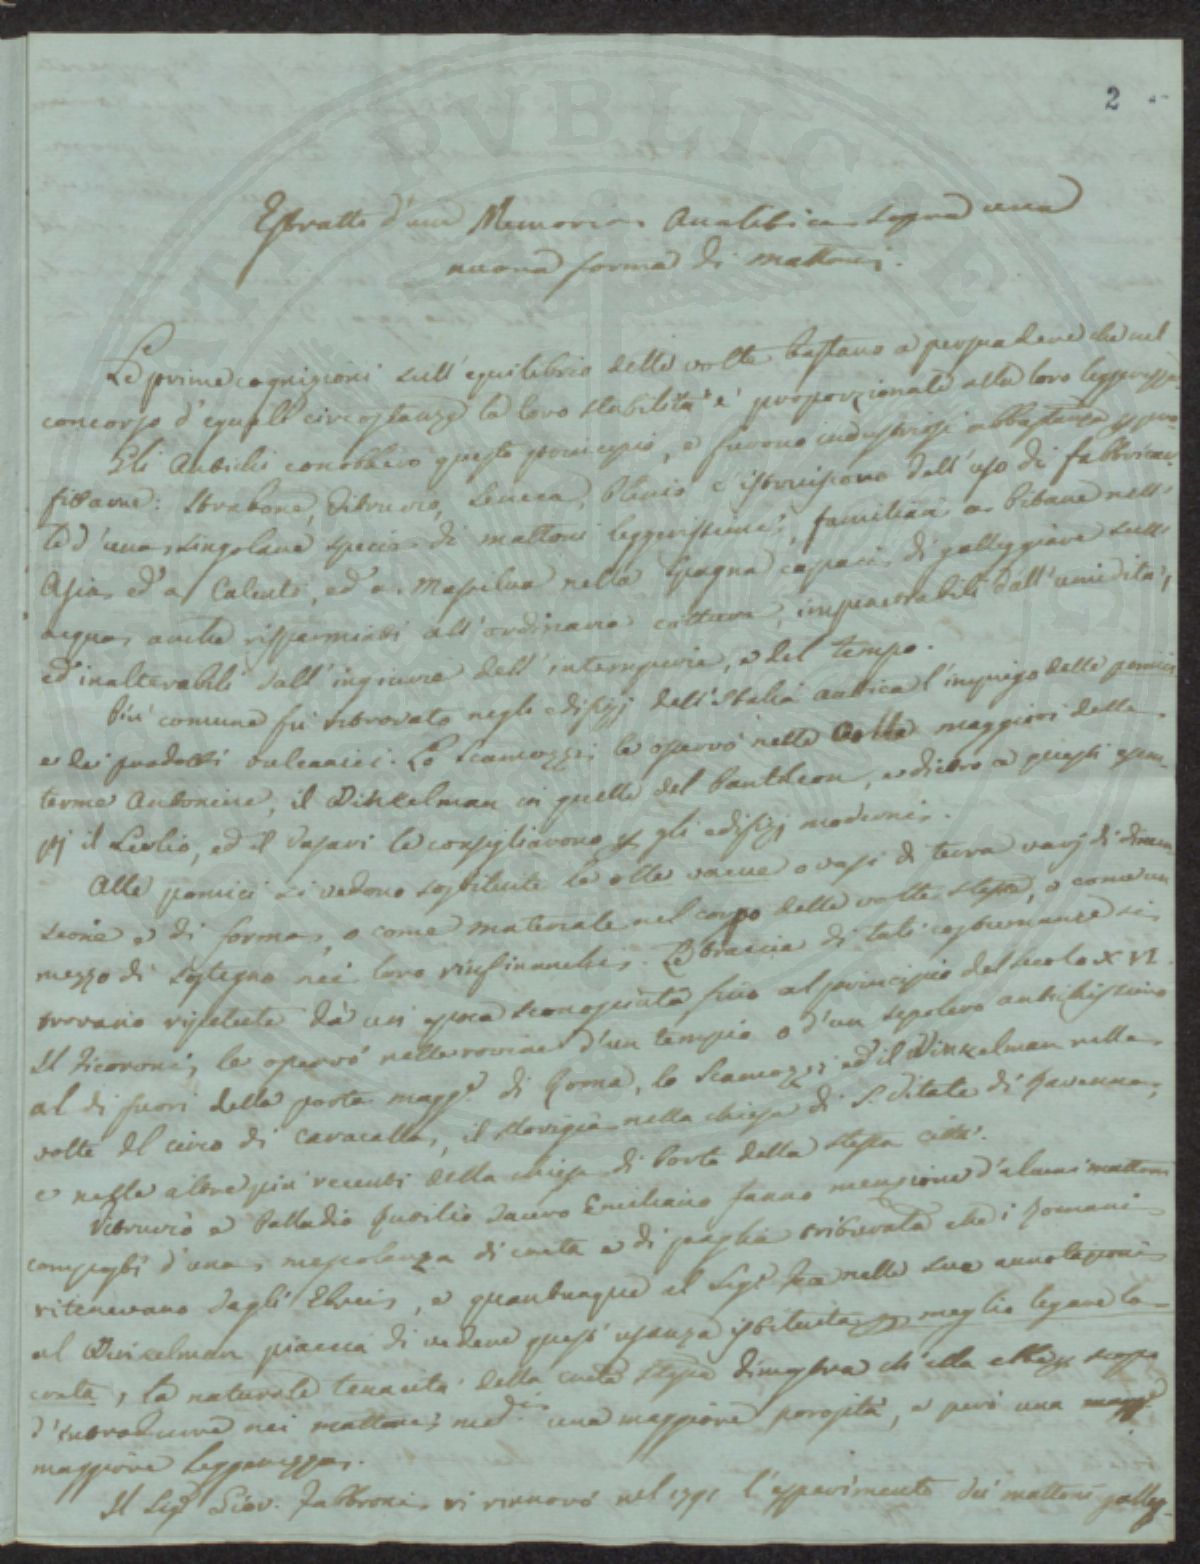 2
Estratto d'una Memoria Analitica sopra una
nuova forma di mattoni.
Le prime cognizioni sull'equilibrio delle volte bastano a persuadere che nel
concorso d'eguali circostanze la loro stabilità è proporzionale alla loro leggerezza.
Gli Antichi conobbero questo principio, e furono industriosi abbastanza p appro-
fittarne: Strabone, Vitruvio, Seneca, Plinio c'istruiscono dell'uso di fabbricar-
le d'una singolare specie di mattoni leggerissimi, familiari a Pitane nell'
Asia, ed a Calento, ed a Massilua nella Spagna capaci di galleggiare sull'
acqua, anche risparmiati all'ordinaria cottura, impenetrabili dall'umidità,
ed inalterabili dall'ingiurie dell'intemperie, e del tempo.
Più comune fù ritrovato negli edifizj dell'Italia antica l'impiego delle pomici
e de' prodotti vulcanici. Lo Scamozzi le osservò nelle volte maggiori delle
terme Antonine, il Winkelman in quelle del Pantheon, e dietro a questi esem-
pj il Serlio, ed il Vasari le consigliarono p gli edifizj moderni.
Alle pomici si vedono sostituite le olle vacue o vasi di terra varj di dimen-
sione e di forma, o come materiale nel corpo delle volte stesse, o come un
mezzo di sostegno nei loro rinfianchi. Le traccie di tali costumanze si
trovano ripetute da un epoca sconosciuta fino al principio del secolo XVI.
Il Ficoroni, le osservò nelle rovine d'un tempio o d'un sepolcro antichissimo
al di fuori della porta magg.e di Roma, lo Scamozzi ed il Winkelman nelle
volte del circo di Caracalla, il nella chiesa di S. Vitale di Ravenna,
e nelle altre più recenti della chiesa di Porto della stessa città.
Vitruvio e Palladio Rutilio Tauro Emiliano fanno menzione d'alcuni mattoni
composti d'una mescolanza di creta e di paglia triturata che i Romani
ritenevano dagli Ebrei, e quantunque al Sig.r Fea nelle sue annotazioni
al Winkelman piaccia di vedere quest'usanza istituita p meglio legare la
creta, la naturale tenacità della creta stessa dimostra ch'ella ebbe p scopo
d'introdurre nei mattoni med.i una maggiore porosità, e però una magg.e
maggiore leggerezza.
Il Sig.r Giov. Fabbroni vi rinnovò nel 1791 l'esperimento dei mattoni galleg-